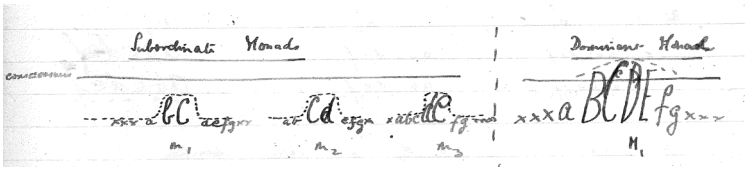 Subordinate Monads Dominant Monad
consciousness
xxx a bC defgxx ab Cd efgx xabc dC fg xxx xxxa BCDE fgxxx
m1 m2 m3 M1